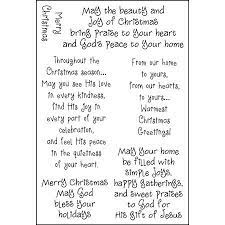 Merry
Christmas
May the beauty and
Joy of Christmas
bring Praise to Your heart
and God's Peace to Your home
Throughout the
Christmas season...
May you see His love
in every kindness,
find His Joy in
every part of your
celebration,
and feel His peace
in the quietness
of your heart.
From our home
to yours,
from our hearts,
to yours...
Warmest
Christmas
Greetings!
Merry Christmas
May God
bless Your
holidays
May Your home
be filled with
simple Joys,
happy gatherings,
and sweet Praises
to God for
His Gift of Jesus